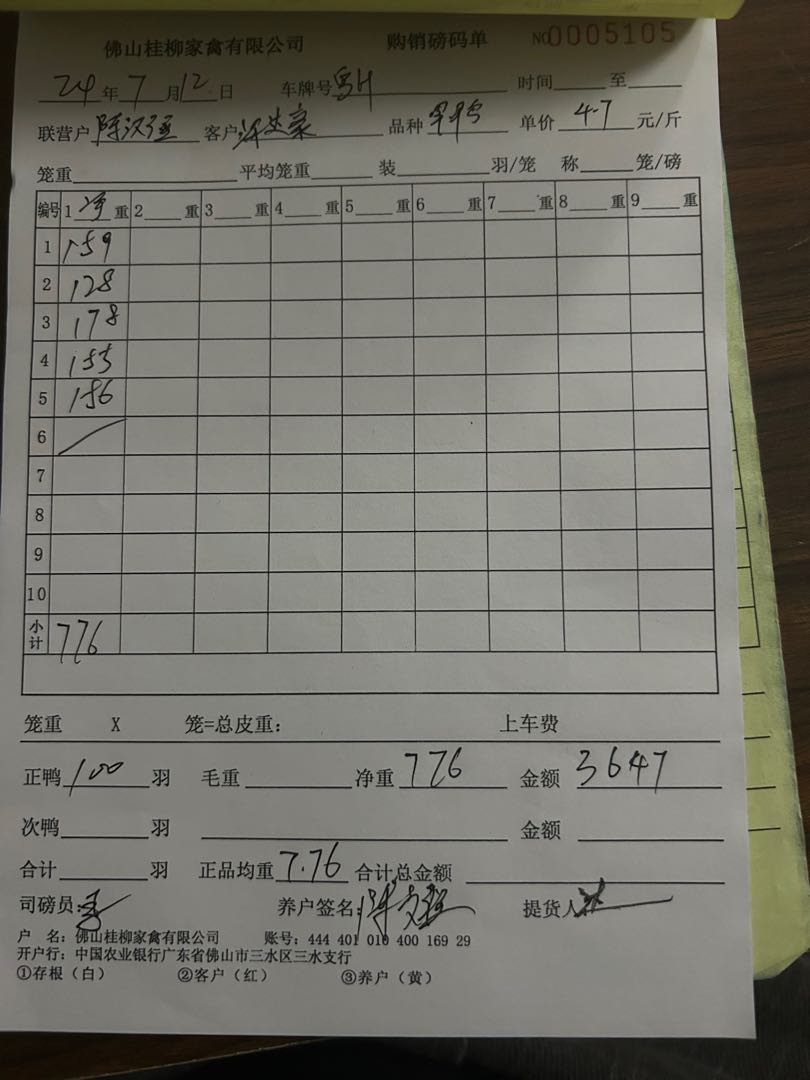 佛山桂柳家禽有限公司 购销磅码单 NO 0005105
24年7月12日 车牌号 时间 至
联营户 陈汉强 客户 品种 单价 4.7 元/斤
笼重 平均笼重 装 羽/笼 称 笼/磅
编号 1 净 重 2 重 3 重 4 重 5 重 6 重 7 重 8 重 9 重
1 159
2 128
3 178
4 155
5 156
6
7
8
9
10
小计 776
笼重 X 笼=总皮重: 上车费
正鸭 100 羽 毛重 净重 776 金额 3647
次鸭 羽 金额
合计 羽 正品均重 7.76 合计总金额
司磅员: 养户签名: 提货人
户 名: 佛山桂柳家禽有限公司 账号: 444 401 010 400 169 29
开户行: 中国农业银行广东省佛山市三水区三水支行
①存根(白) ②客户(红) ③养户(黄)